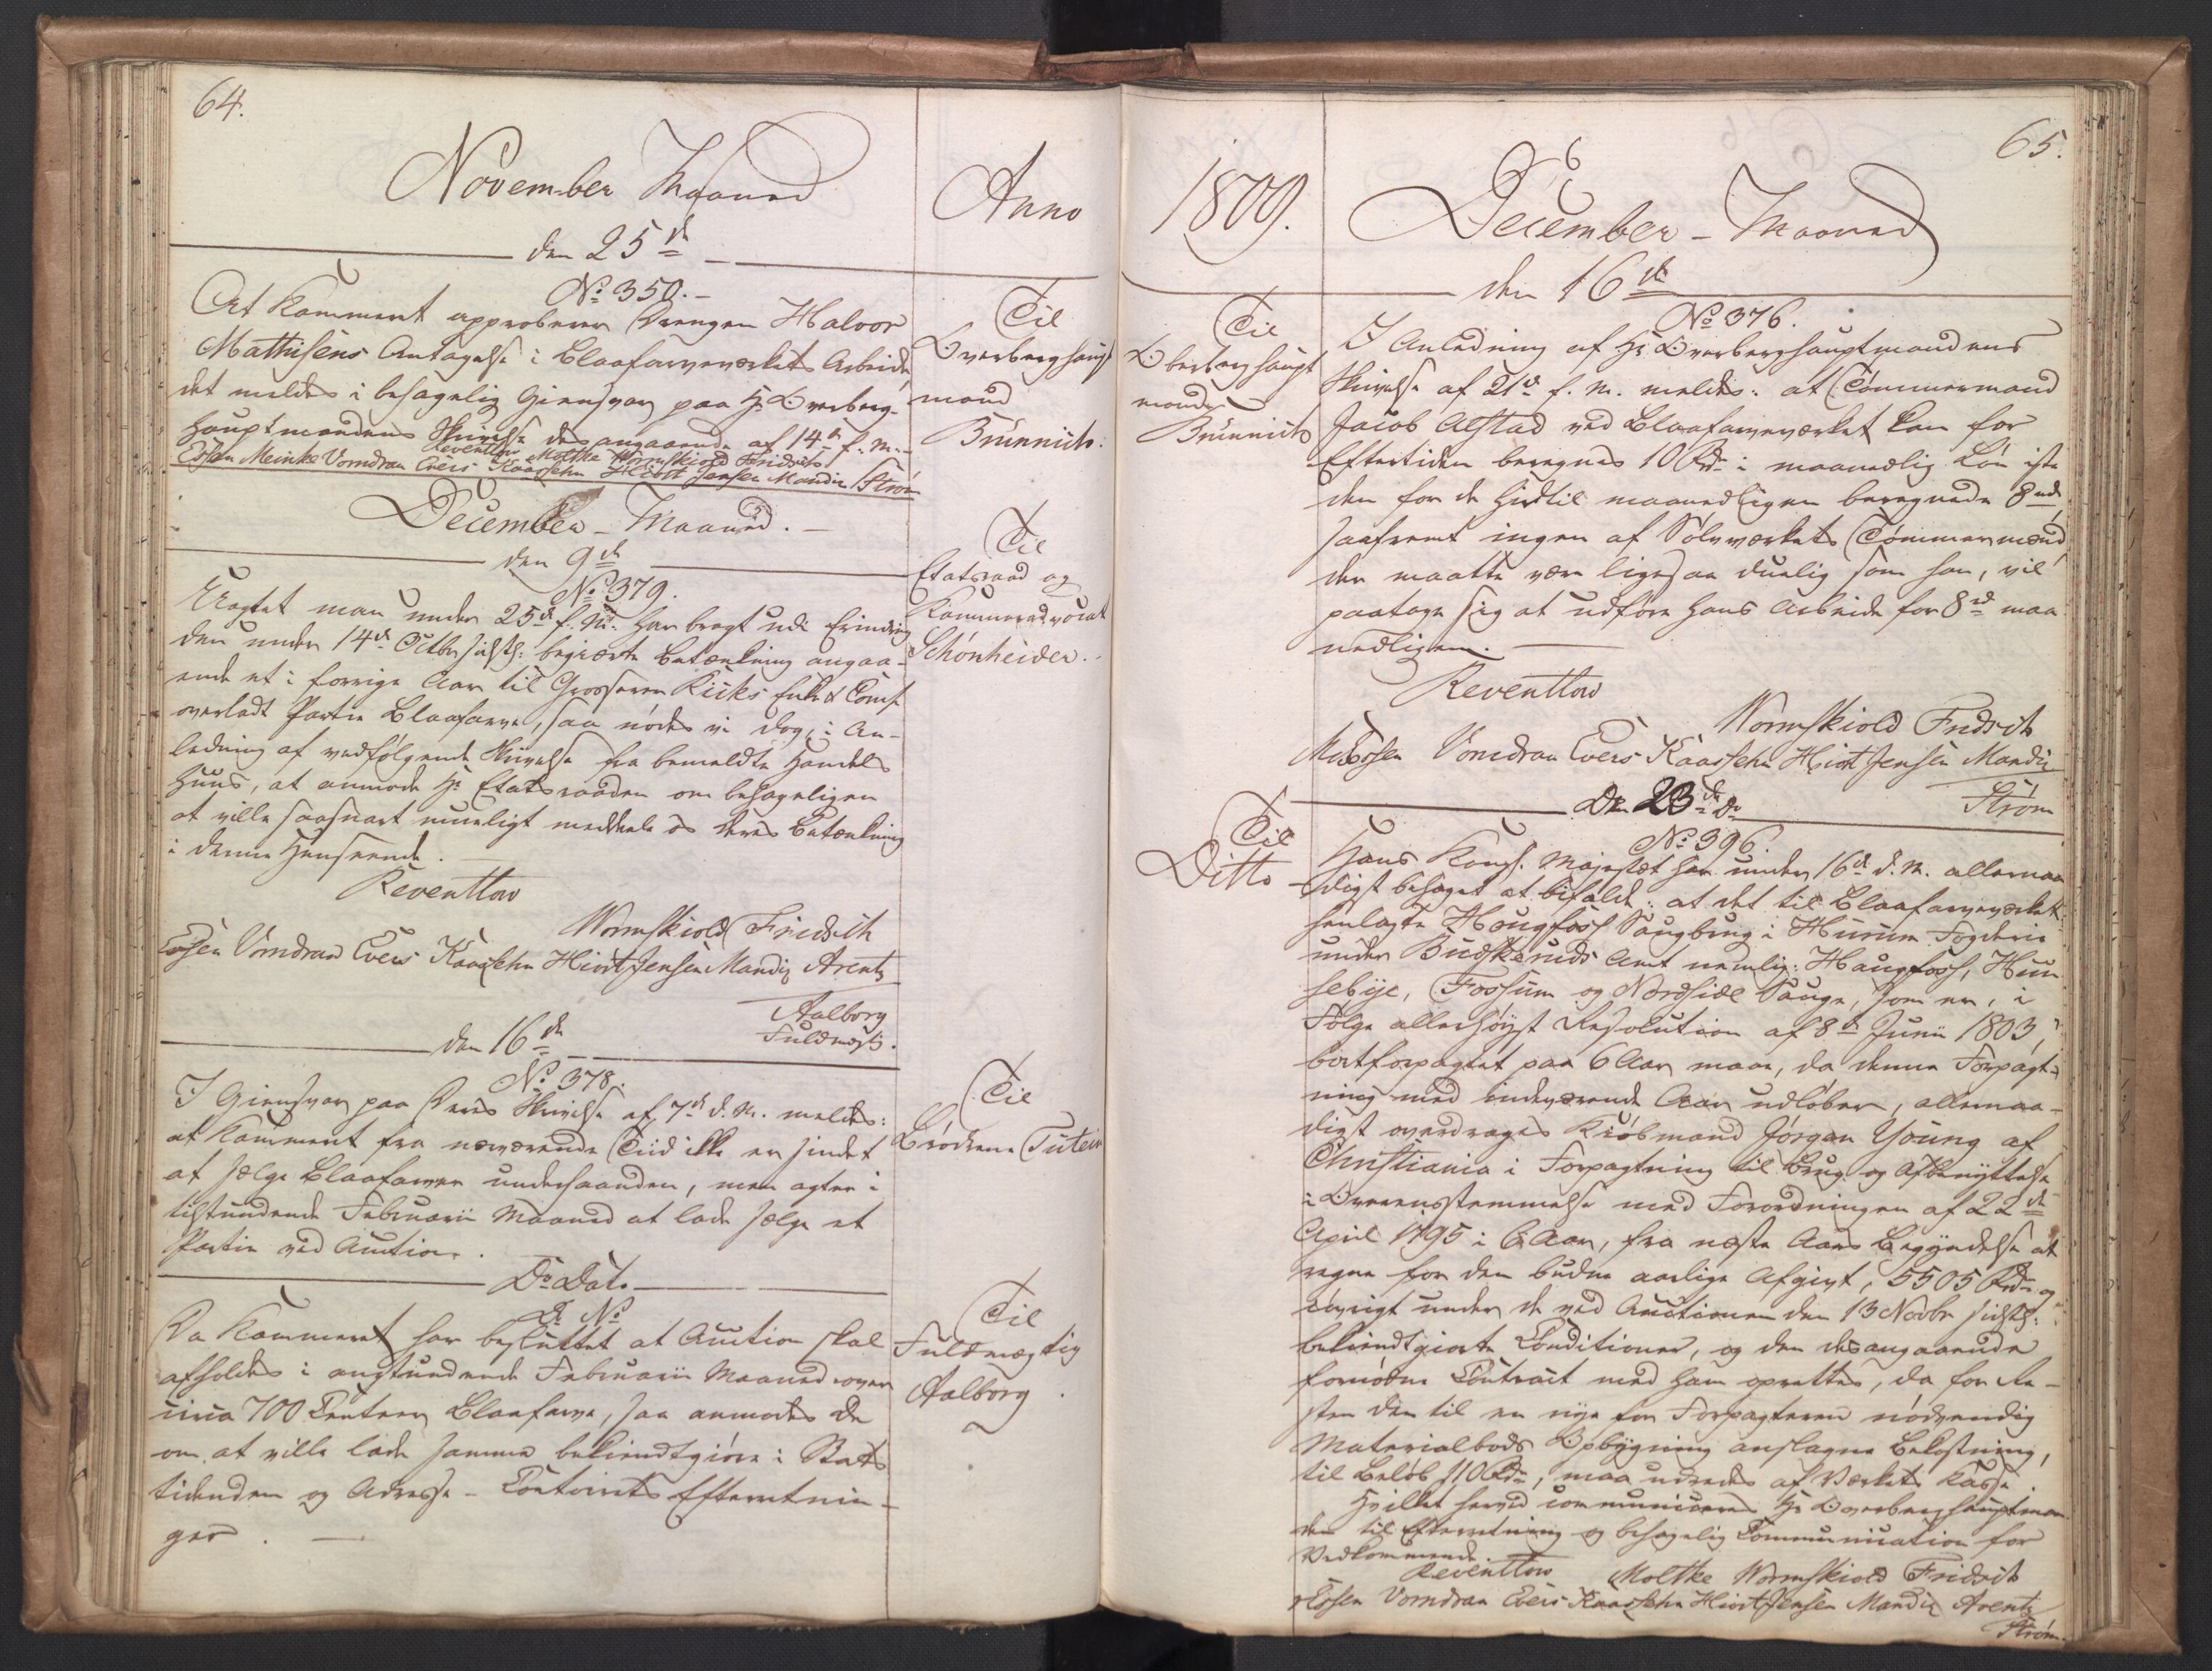 64.
November Maaned
Anno
den 25de
No 350.
At Kammeret approberer Drengen Halvor
Mathisens Antagelse i Blaafarveværkets Arbeide,
det meldes i behagelig Giensvar paa Hr Overberg-
hauptmandens Skrivelse desangaaende af 14de f. M.
Reventlow Moltke Wormskiold Fridrich
Essen Meinke Vorndran Evers Kaasbøhn Hiort Jensen Mandix / Strøm
Til
Overberghaupt
mand
Brünnich.
December Maaned.
den 9de
No 379.
Uagtet man under 25de f. M. har bragt udi Erindring
den under 14de Octbr sidstl: begierte Betænkning angaa-
ende et i forrige Aar til Grosserer Kücks Enke & Comp
overladt Partie Blaafarve, saa nødes vi dog, i An-
ledning af vedfølgende Skrivelse fra bemeldte Handels
Huus, at anmode Hr Etatsraaden om behageligen
at ville saasnart mueligt meddele os deres Betænkning
i denne Henseende.
Reventlow
Wormskiold Fridrich
Essen Vorndran Evers Kaasbøhn Hiort Jensen Mandix Arentz
Aalborg
Fuldmægt.
Til
Etatsraad og
Kammeradvocat
Schönheider.
den 16de
No 378.
I Giensvar paa Deres Skrivelse af 7de d. M. meldes:
at Kammeret fra nærværende Tiid ikke er sindet
at sælge Blaafarver underhaanden, men agter i
tilstundende Februarii Maaned at lade sælge et
Partie ved Auction.
Til
Brødrene Tutein
Do Dato
Do No
Da Kammeret har besluttet at Auction skal
afholdes i anstundende Februarii Maaned over
circa 700 Centner Blaafarve, saa anmodes De
om at ville lade samme bekiendtgiøre i Stats
tidenden og Adresse-Contoirets Efterretnin-
ger.
Til
Fuldmægtig
Aalborg
65.
1809.
December Maaned
den 16de
No 376.
Til
Oberberghaupt
mand
Brünnich
I Anledning af Hr Overberghauptmandens
Skrivelse af 21de f. M. meldes: at Tømmermand
Jacob Alstad ved Blaafarveværket kan for
Eftertiden beregnes 10 Rdr i maanedlig Løn iste-
den for de hidtil maanedligen beregnede 8 rd,
saafremt ingen af Sølvværkets Tømmermænd,
der maatte være ligesaa duelig som han, vil
paatage sig at udføre hans Arbeide for 8 rd maa
nedligen.
Reventlow
Wormskiold Fridrich
Essen Vorndran Evers Kaasbøhn Hiort Jensen Mandix
Strøm
Den 23de Do
No 396.
Til
Ditto
Hans Kongl. Majestæt har under 16de d. M. allernaa
digst behaget at bifalde: at det til Blaafarveværket
henlagte Hougfoss Saugbrug i Hurum Fogderie
under Buskeruds Amt nemlig: Haugfoss, Huu
sebye, Fossum og Nordside Sauge, som er, i
Følge allerhøyst Resolution af 8de Junii 1803,
bortforpagtet paa 6 Aar maae, da denne Forpagt-
ning med indeværende Aar udløber, allernaa-
digst overdrages Kiøbmand Jørgen Young af
Christiania i Forpagtning til Brug og Afbenyttelse
i Overensstemmelse med Forordningen af 22de
April 1795 i 6 Aar, fra næste Aars Begyndelse at
regne for den budne aarlige Afgivt, 5505 Rdr og
iøvrigt under de ved Auctionen den 13 Novbr sidstl:
bekiendtgiorte Conditioner, og den desangaaende
fornødne Contract med ham oprettes, da for Re-
sten den til en nye for Forpagteren nødvendig
Materialbods Opbygning anslagne Bekostning,
til Beløb 110 Rdr, maa udredes af Værkets Kasse.
Hvilket herved communiceres Hr Overberghauptman
den til Efterretning og behagelig Communication for
Vedkommende.
Reventlow Moltke Wormskiold Fridrich
Essen Vorndran Evers Kaasbøhn Hiort Jensen Mandix Arentz
Strøm.